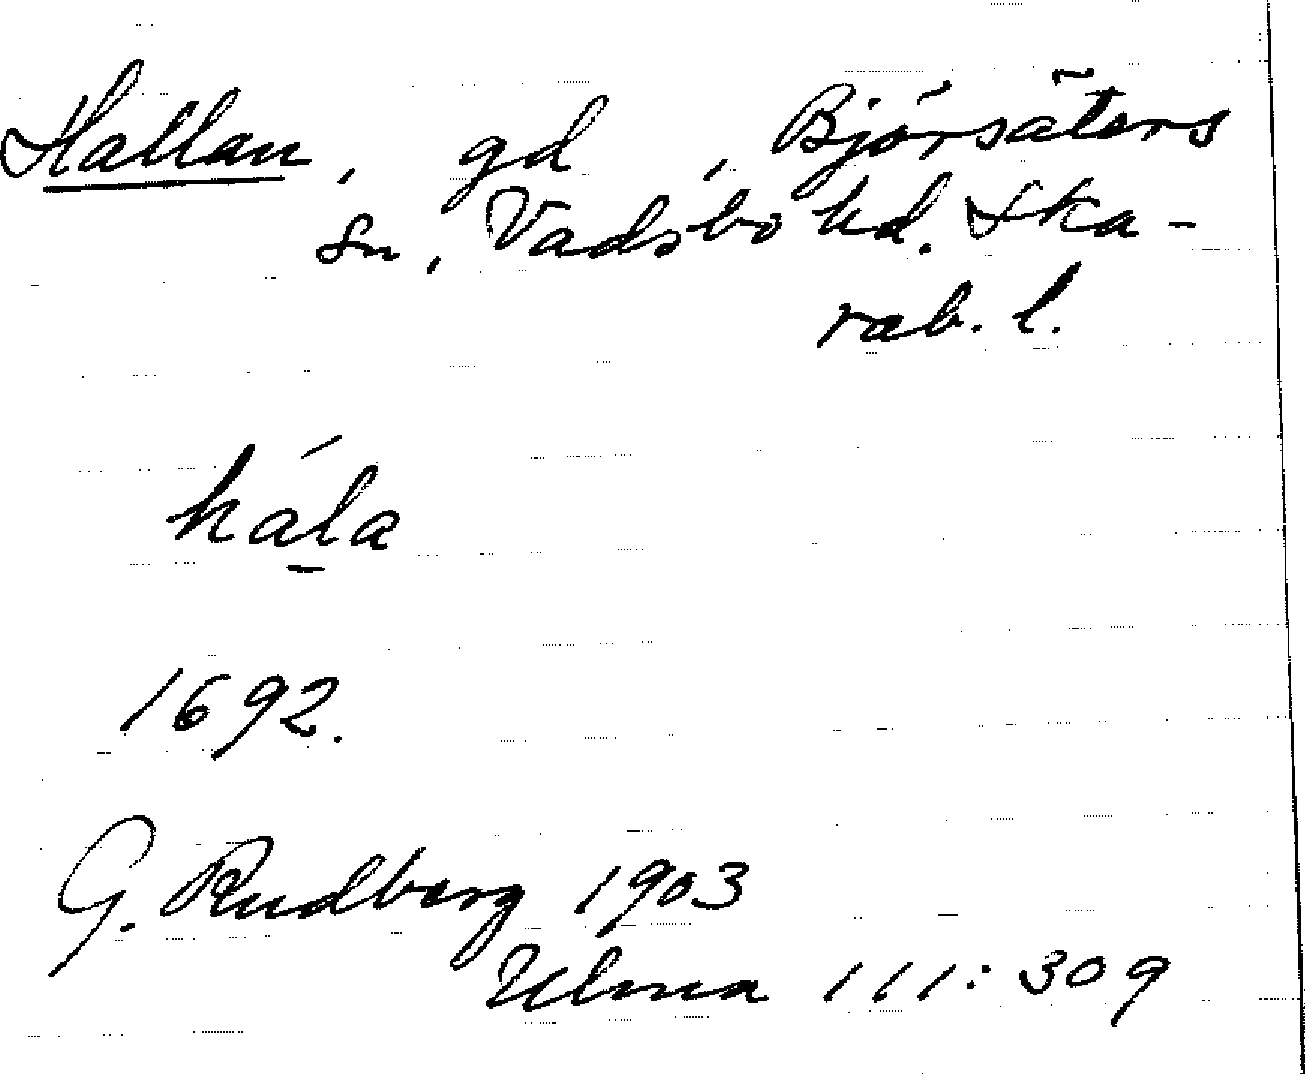 Hallan, gd, Björsäters
sn, Vadsbo hd. Ska-
rab. l.
hála
1692.
G. Rudberg 1903
Ulma 111:309